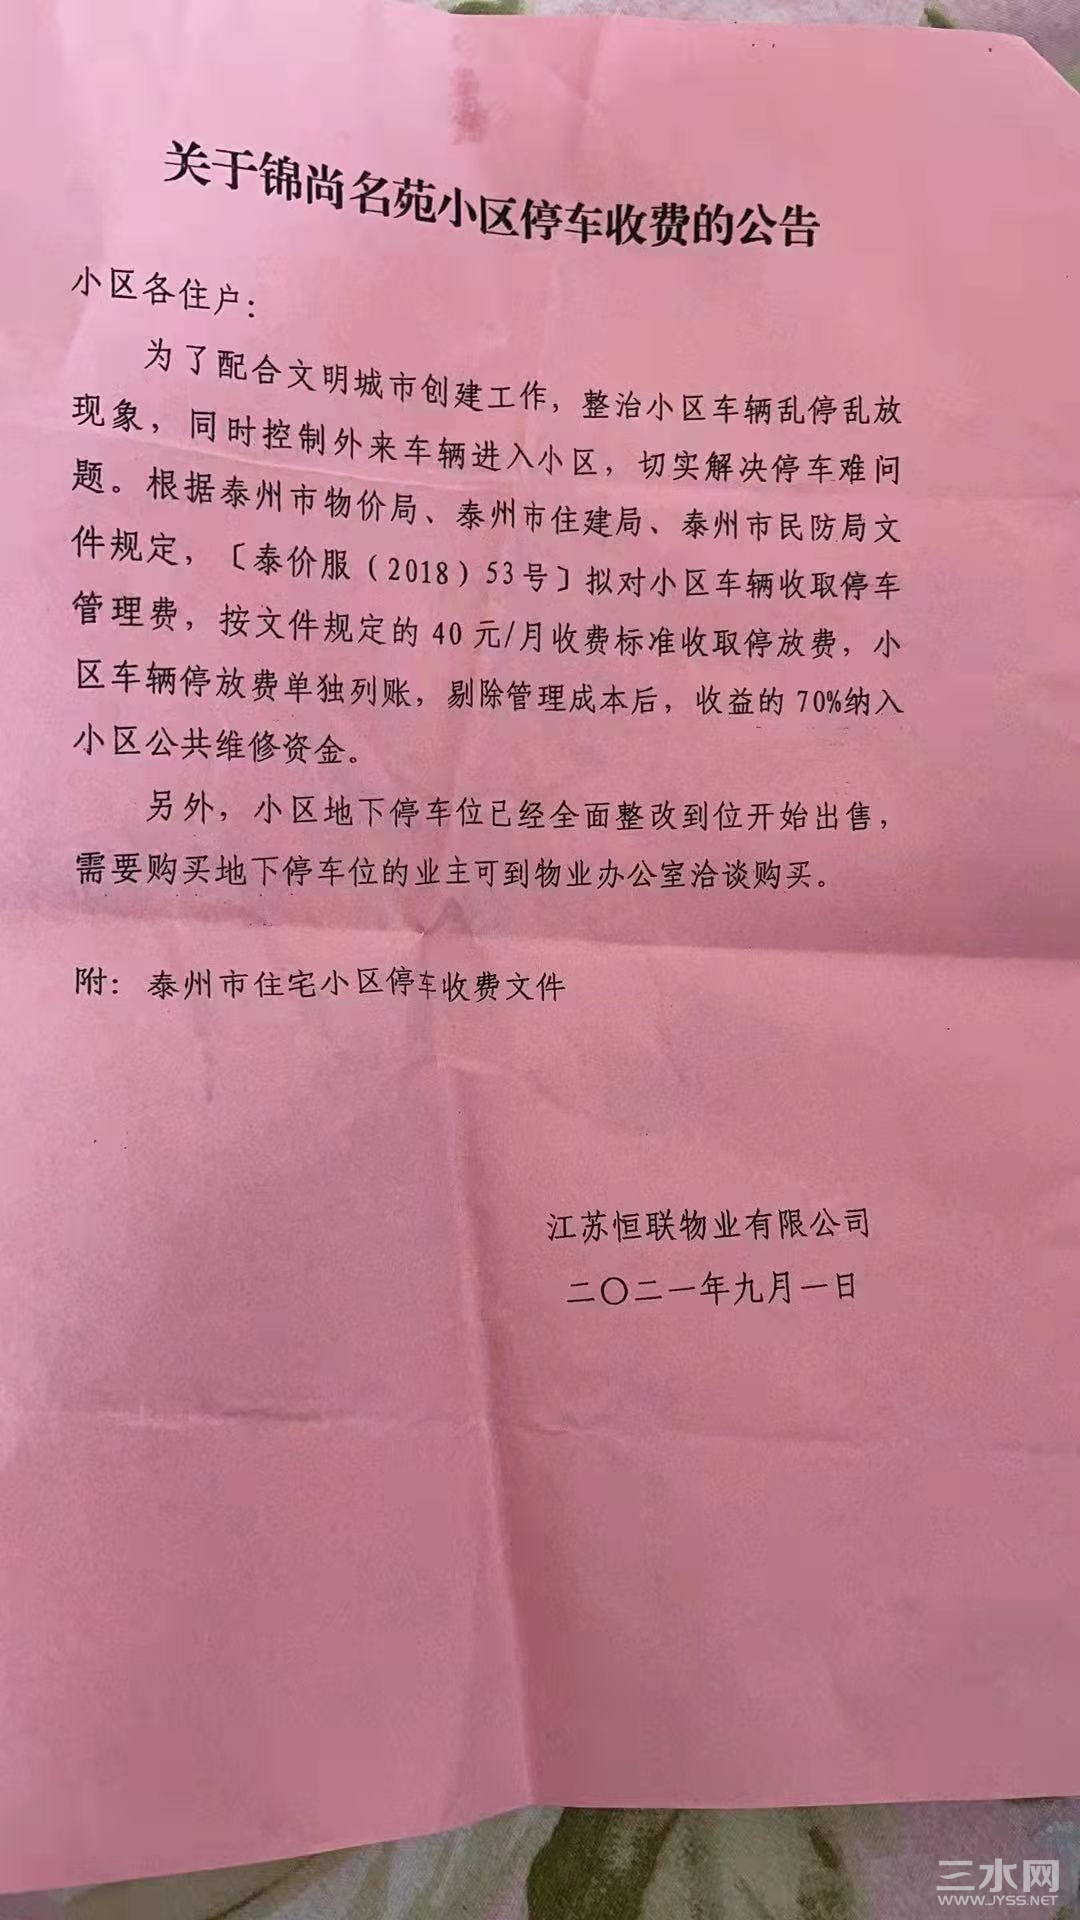 关于锦尚名苑小区停车收费的公告
小区各住户：
为了配合文明城市创建工作，整治小区车辆乱停乱放
现象，同时控制外来车辆进入小区，切实解决停车难问
题。根据泰州市物价局、泰州市住建局、泰州市民防局文
件规定，〔泰价服（2018）53号〕拟对小区车辆收取停车
管理费，按文件规定的40元/月收费标准收取停放费，小
区车辆停放费单独列账，剔除管理成本后，收益的70%纳入
小区公共维修资金。
另外，小区地下停车位已经全面整改到位开始出售，
需要购买地下停车位的业主可到物业办公室洽谈购买。
附：泰州市住宅小区停车收费文件
江苏恒联物业有限公司
二〇二一年九月一日
三水网
WWW.JYSS.NET